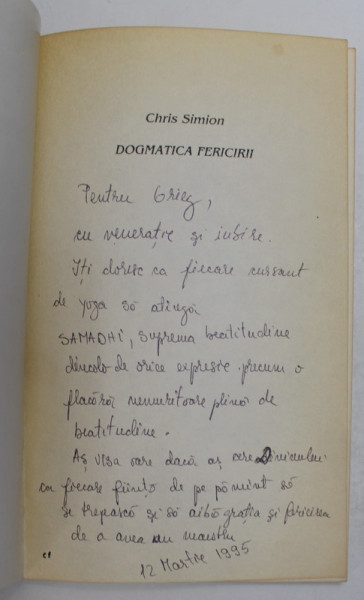 Chris Simion
DOGMATICA FERICIRII
Pentru Grieg,
cu venerație și iubire.
Îți doresc ca fiecare cursant
de yoga să atingă
SAMADHI, suprema beatitudine
dincolo de orice expresie precum o
flacără nemuritoare plină de
beatitudine.
Aș visa oare dacă aș cere Divinului
ca fiecare ființă de pe pămînt să
se trezească și să aibă grația și fericirea
de a avea un maestru
12 Martie 1995